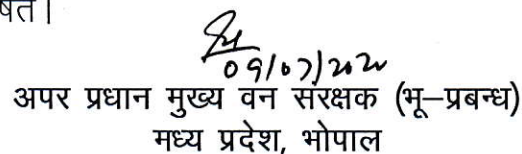 षत।
09/07/2020
अपर प्रधान मुख्य वन संरक्षक (भू–प्रबन्ध)
मध्य प्रदेश, भोपाल